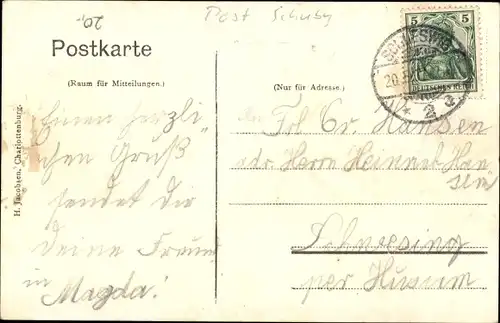 20,
Post Schuby
Postkarte
(Raum für Mitteilungen.)
(Nur für Adresse.)
5 5
DEUTSCHES REICH
SCHLESWIG
20.
* 2 c
H. Jacobsen, Charlottenburg.
Einen herzli-
chen Gruß
sendet dir
deine Freun
in
Magda!
Frl Cr. Hansen
adr. Herrn Heinnet Han
sen
Schwesing
per Husum